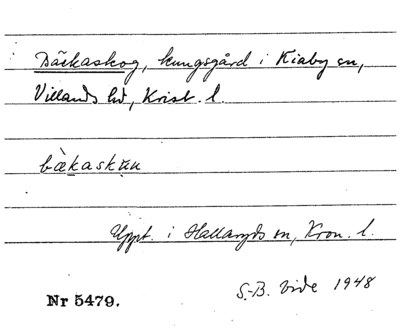 Bäckaskog, kungsgård i Kiaby sn,
Villands hd, Krist. l.
bækaskuu
Uppt. i Hallaryds sn, Kron. l.
S.-B. Vide 1948
Nr 5479.